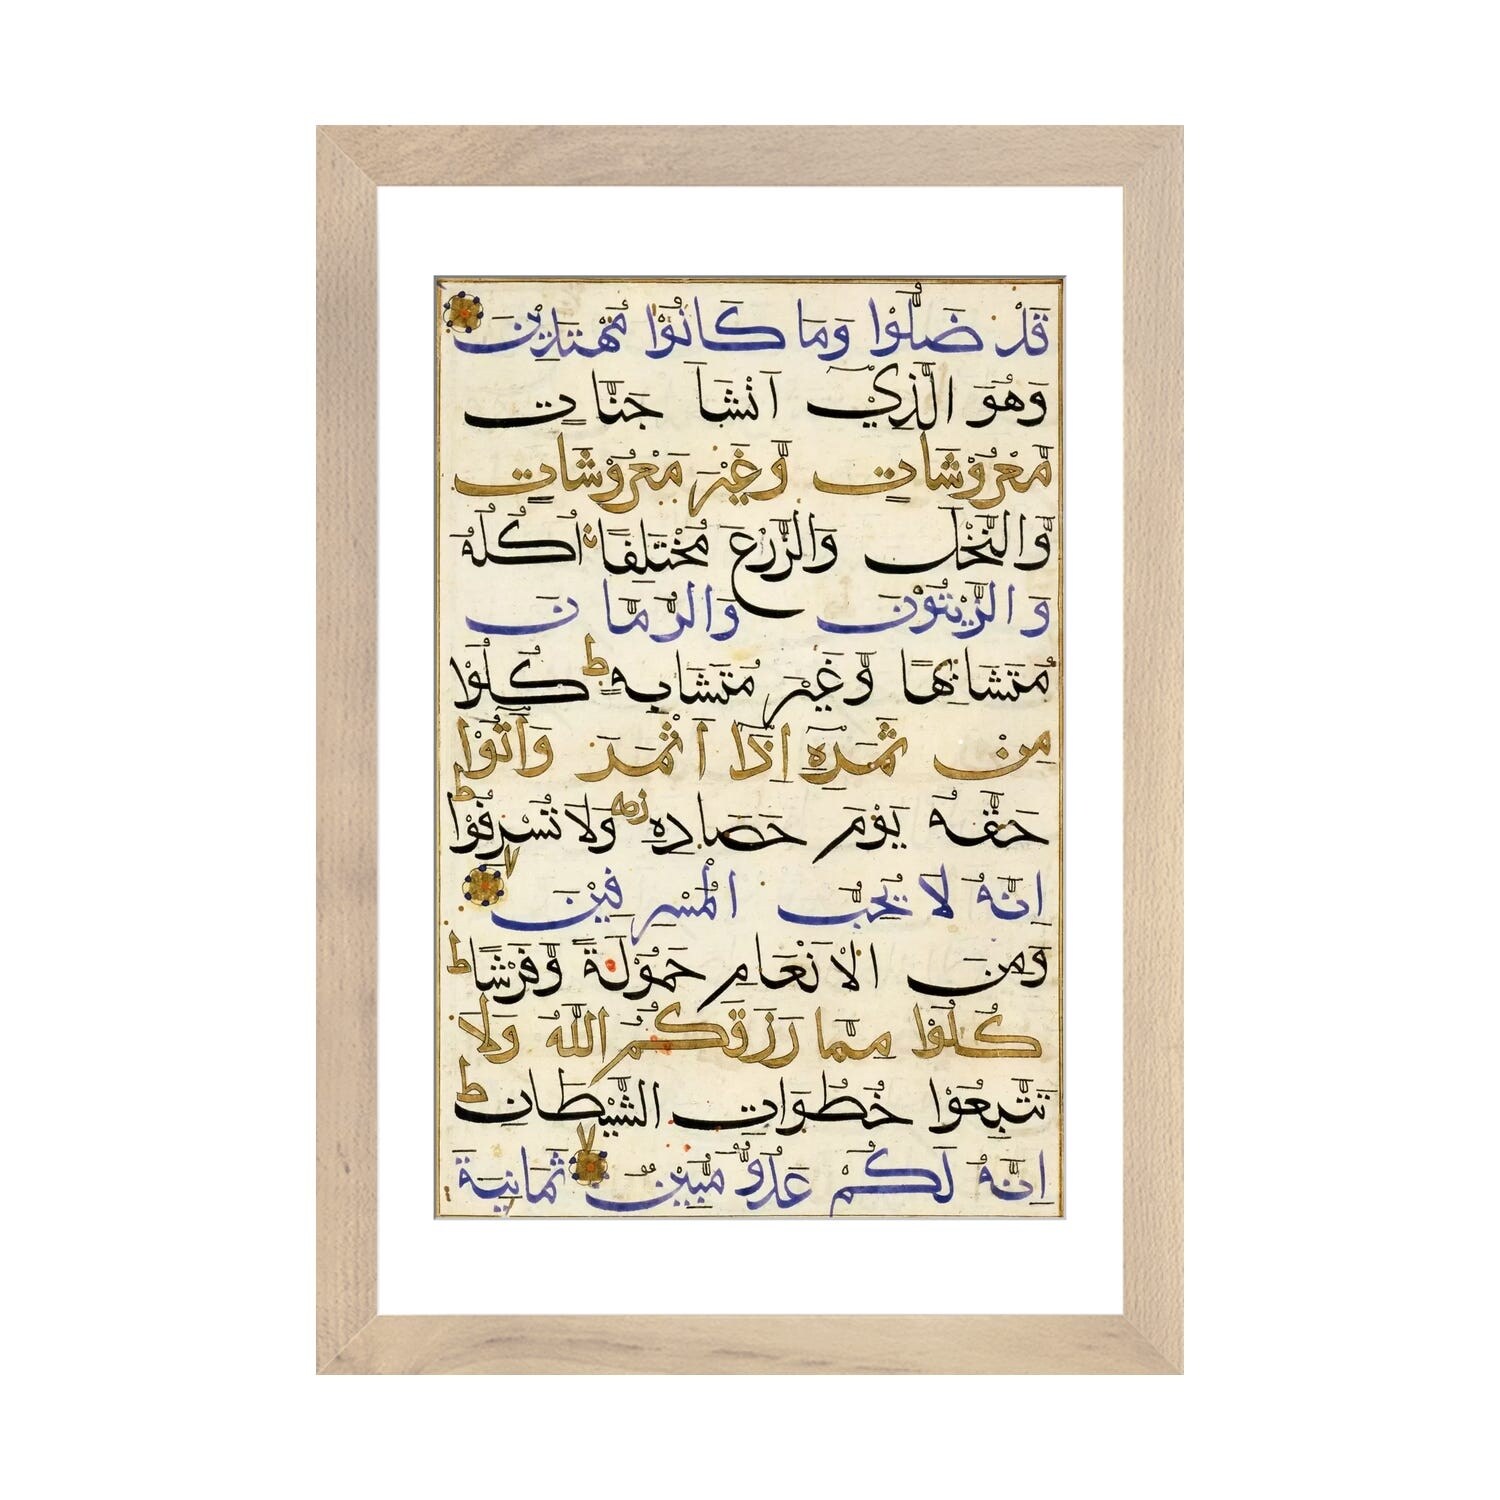 قَدْ ضَلُّوْا وَمَا كَانُوْا مُهْتَدِيْنَ
وَهُوَ الَّذِيْ اَنْشَاَ جَنَّاتٍ
مَّعْرُوْشَاتٍ وَّغَيْرَ مَعْرُوْشَاتٍ
وَّالنَّخْلَ وَالزَّرْعَ مُخْتَلِفًا اُكُلُهُ
وَالزَّيْتُوْنَ وَالرُّمَّانَ
مُتَشَابِهًا وَّغَيْرَ مُتَشَابِهٍ ط كُلُوْا
مِنْ ثَمَرِهِ اِذَا اَثْمَرَ وَاٰتُوْا
حَقَّهُ يَوْمَ حَصَادِهِ وَلَا تُسْرِفُوْا ط
اِنَّهُ لَا يُحِبُّ الْمُسْرِفِيْنَ لا
وَمِنَ الْاَنْعَامِ حَمُوْلَةً وَّفَرْشًا ط
كُلُوْا مِمَّا رَزَقَكُمُ اللّٰهُ وَلَا
تَتَّبِعُوْا خُطُوَاتِ الشَّيْطَانِ ط
اِنَّهُ لَكُمْ عَدُوٌّ مُّبِيْنٌ لا ثَمَانِيَةَ